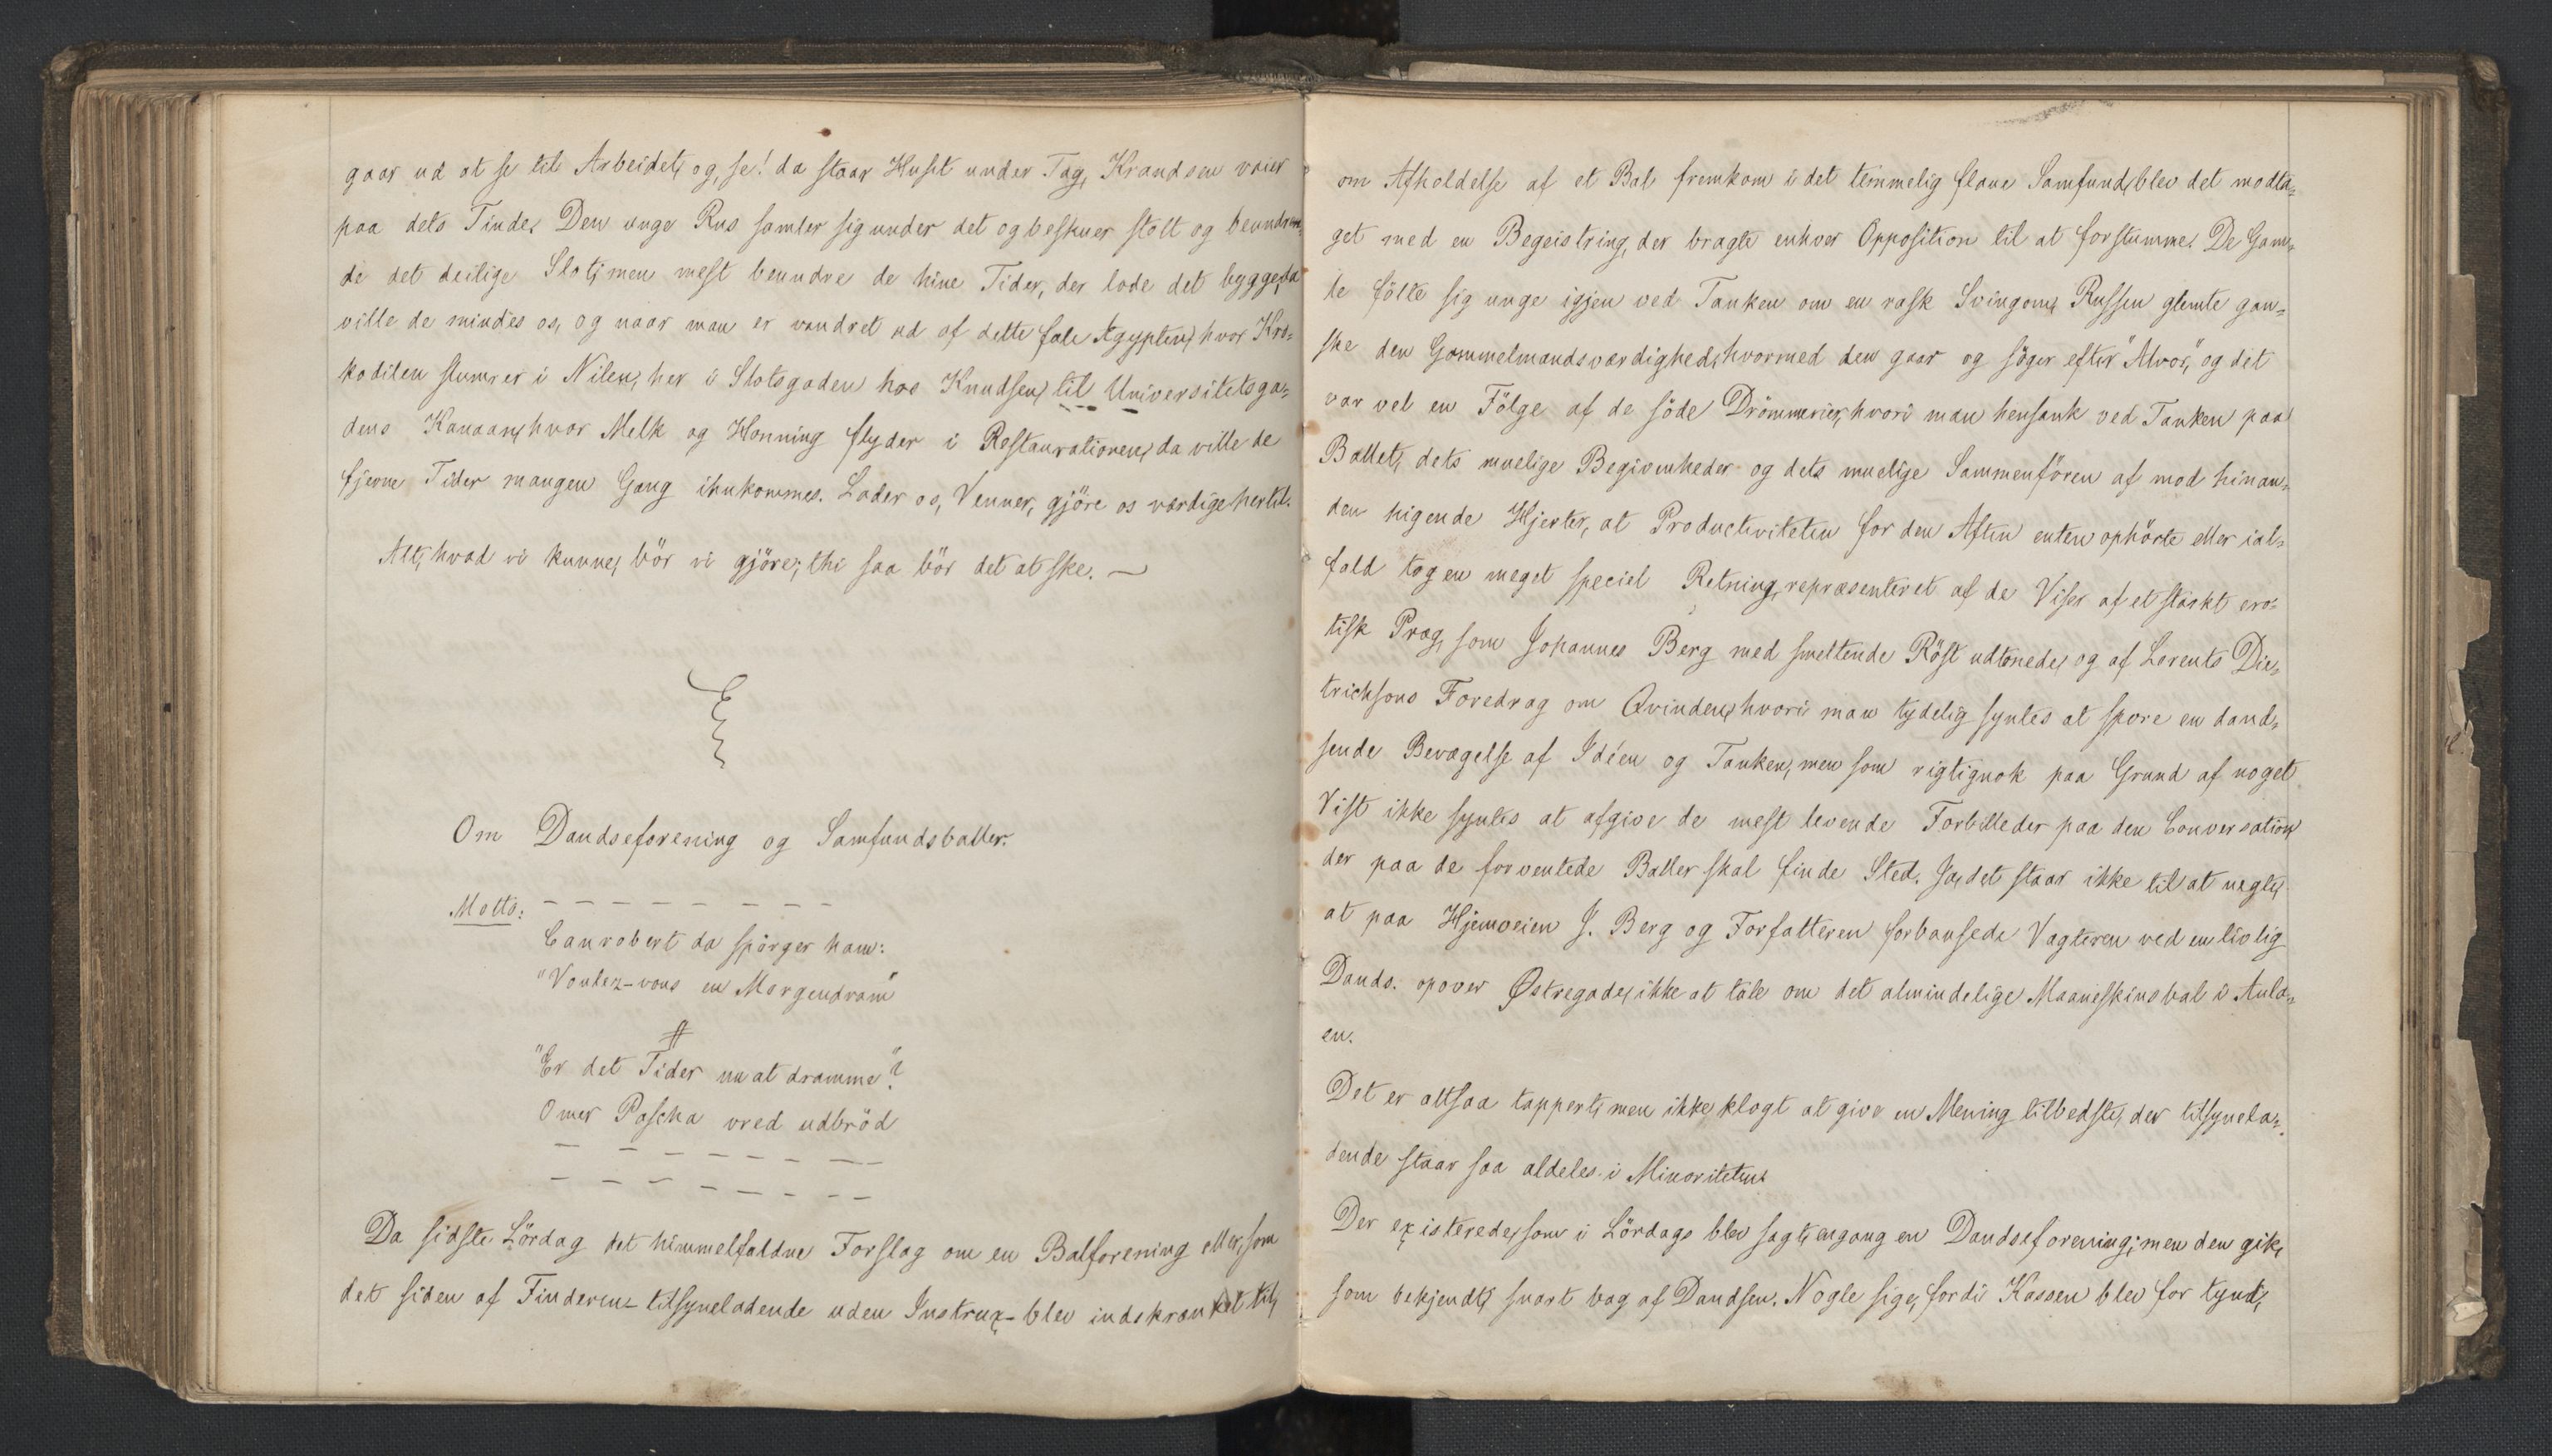 gaar ud at se til Arbeidet, og, se! da staar Huset under Tag, Krandsen vaier
paa dets Tinde, Den unge Rus samler sig under det og beskuer stolt og beundren-
de det deilige Slot; men mest beundre de hine Tider, der lode det bygge, da
ville de mindes os, og naar man er vandret ud af dette fale Ægypten, hvor Kro-
kodilen slumrer i Nilen, her i Slotsgaden hos Knudsen, til Universitetsga-
dens Kanaan, hvor Melk og Honning flyder i Restaurationen, da ville de
fjerne Tider mangen Gang ihukommes. Lader os, Venner, gjöre os værdige hertil.
Alt, hvad vi kunne, bör vi gjöre; thi saa bör det at ske. —
Om Dandseforening og Samfundsballer.
Motto: — — — — — — — — —
Canrobert da spörger ham:
"Voulez-vous en Morgendram"
"Er det Tider nu at dramme"?
Omer Pascha vred udbröd
— — — — — — — —
— — — — — — — —
Da sidste Lördag det himmelfaldne Forslag om en Balforening eller, som
det siden af Finderen – tilsyneladende uden Instrux – blev indskrænket til,
om Afholdelse af et Bal fremkom i det temmelig flaue Samfund, blev det modta-
get med en Begeistring, der bragte enhver Opposition til at forstumme. De Gam-
le fölte sig unge igjen ved Tanken om en rask Svingom, Russen glemte gan-
ske den Gammelmandsværdighed, hvormed den gaar og söger efter "Alvor," og det
var vel en Fölge af de söde Drömmerier, hvori man hensank ved Tanken paa
Ballet, dets muelige Begivenheder og dets muelige Sammenfören af mod hinan-
den higende Hjerter, at Productiviteten for den Aften enten ophörte eller ial-
fald tog en meget speciel Retning, repræsenteret af de Viser af et stærkt ero-
tisk Præg, som Johannes Berg med smeltende Röst udtonede, og af Lorents Die-
trichsons Foredrag om Qvinden, hvori man tydelig syntes at spore en dand-
sende Bevægelse af Idéen og Tanken, men som rigtignok paa Grund af noget
Vist ikke syntes at afgive de mest levende Forbilleder paa den Conversation
der paa de forventede Baller skal finde Sted. Ja, det staar ikke til at negte,
at paa Hjemveien J. Berg og Forfatteren forbausede Vægteren ved en livlig
Dands opover Østregade, ikke at tale om det almindelige Maaneskinsbal i Aula-
en.
Det er altsaa tappert, men ikke klogt at give en Mening tilbedste, der tilsynela-
dende staar saa aldeles i Minoriteten.
Der existerede, som i Lördags blev sagt, engang en Dandseforening; men den gik,
som bekjendt, snart bag af Dandsen. Nogle sige, fordi Kassen blev for tynd,